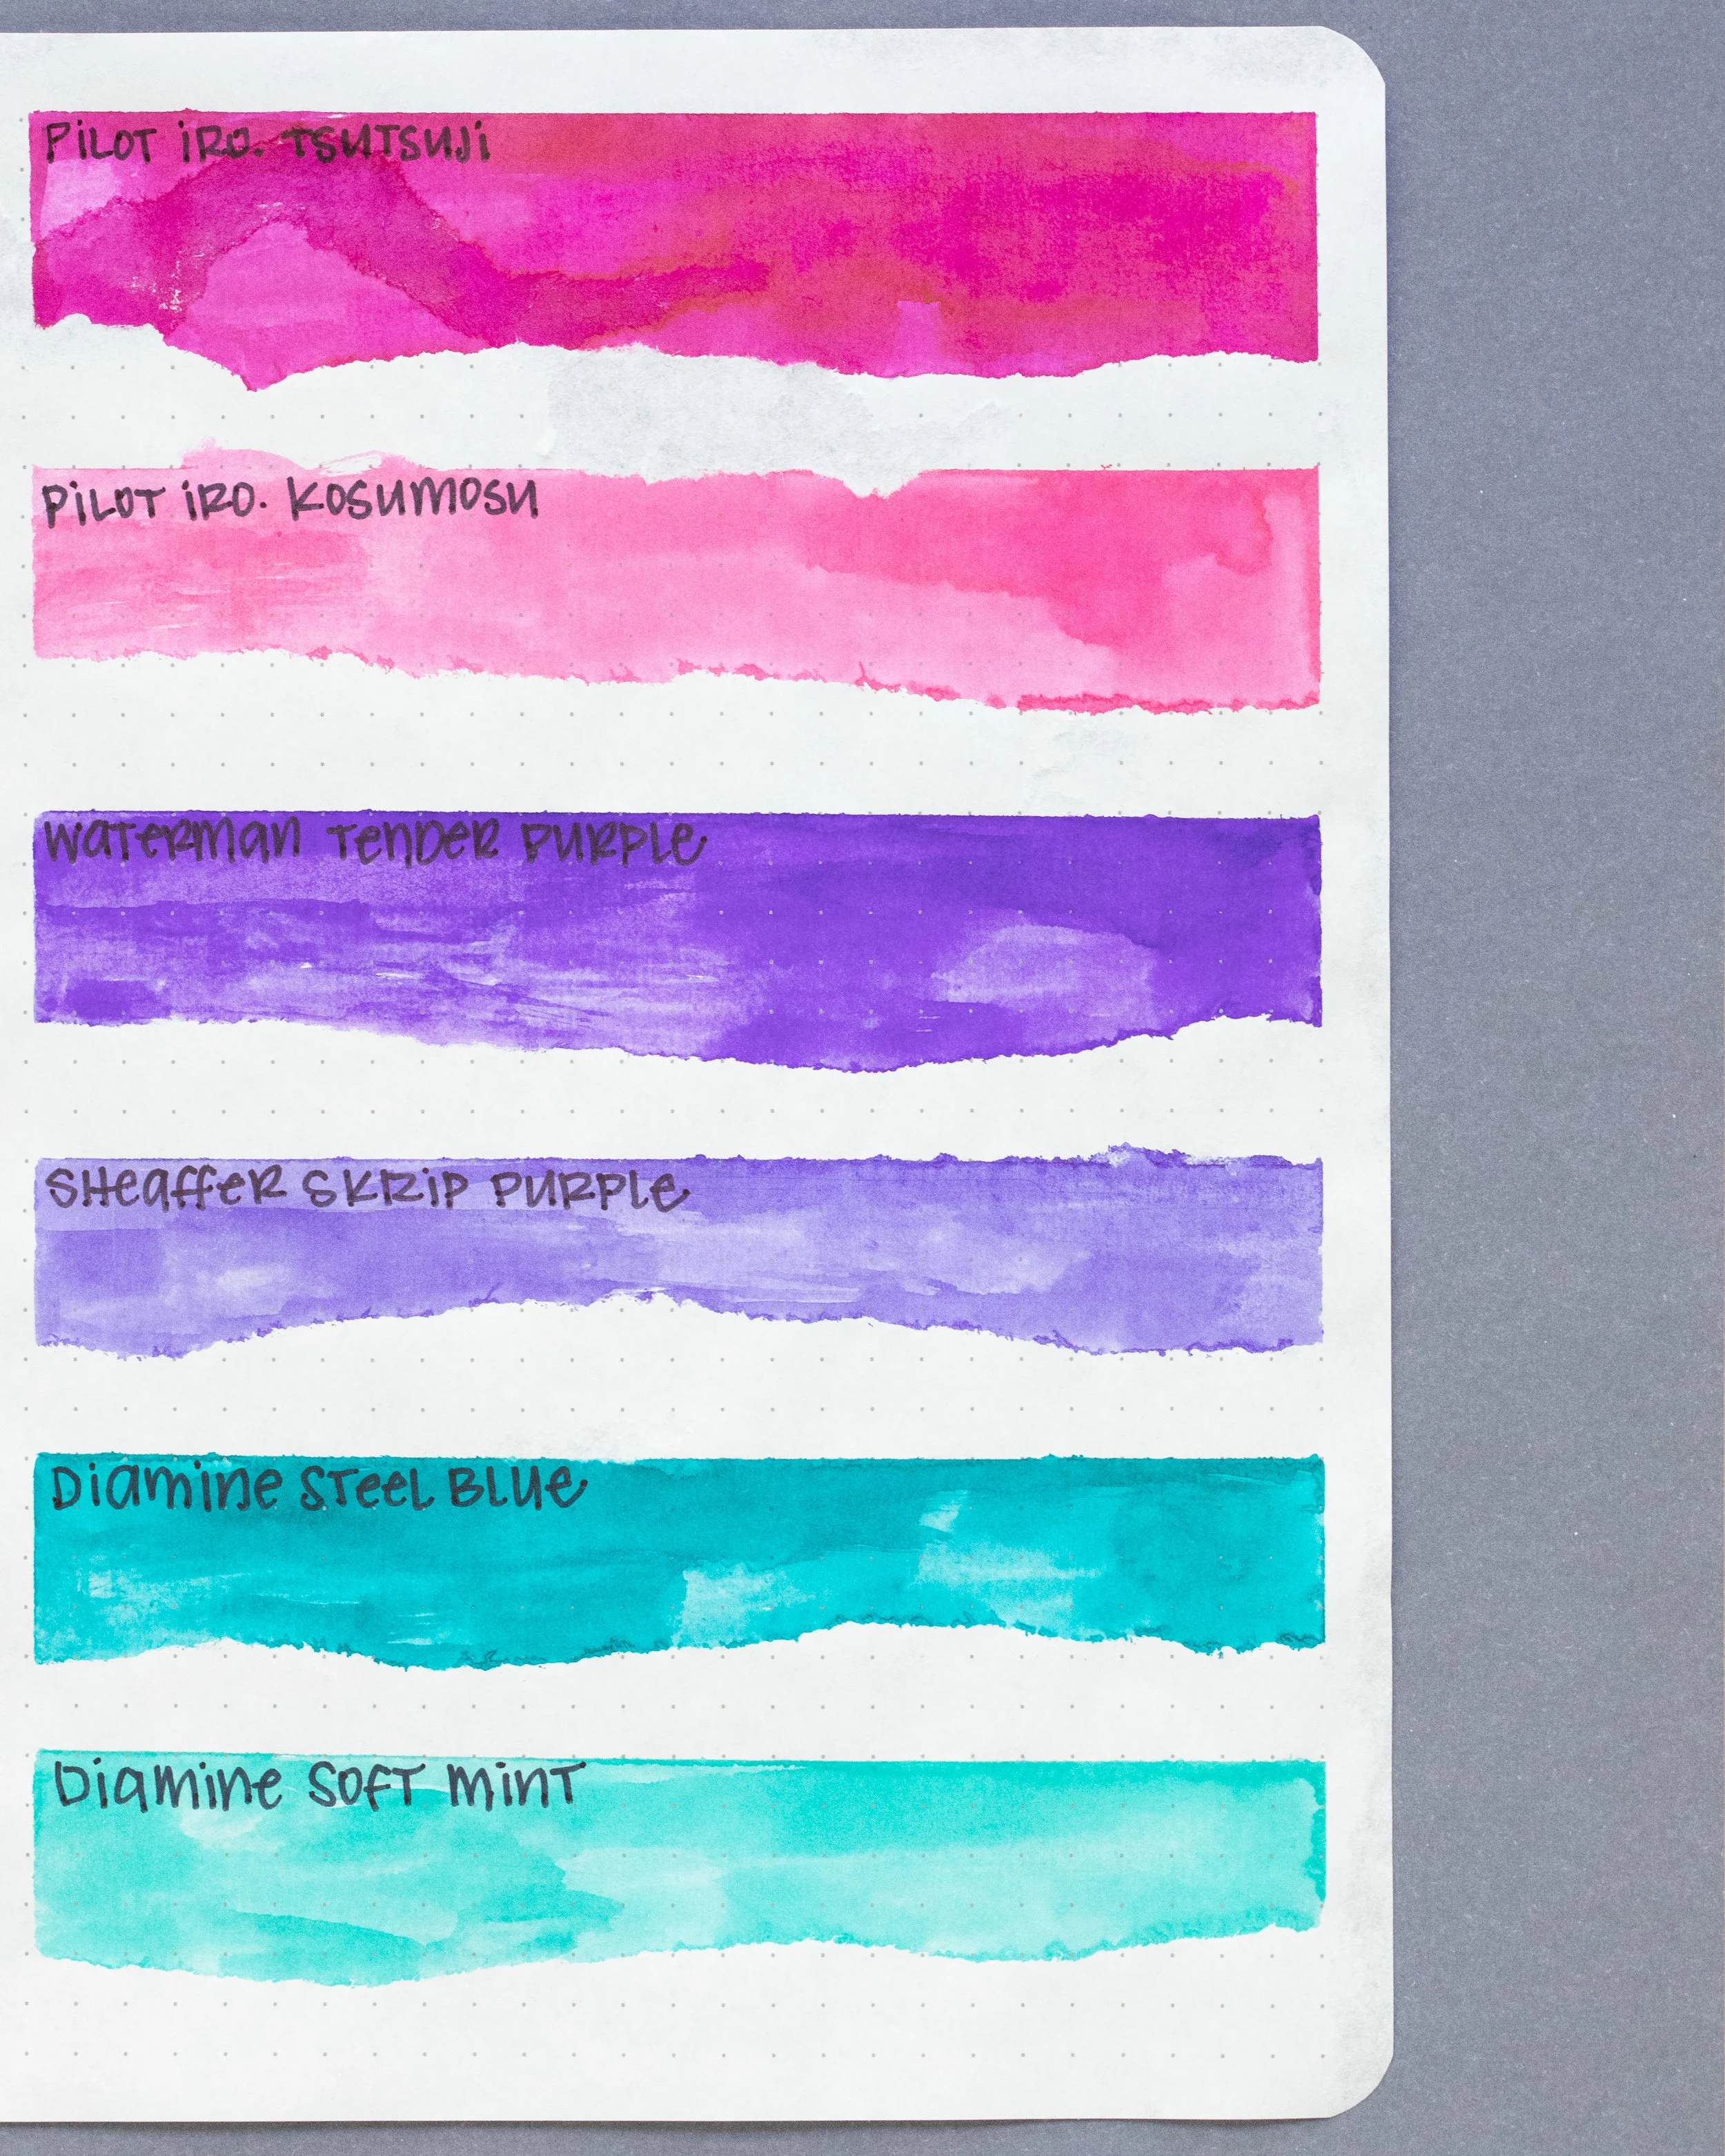 PiLOT iRO. TSUTSUJi
PiLOT iRO. KOSUMOSU
WATERMAN TENDER PURPLE
SHEAFFER SKRiP PURPLE
DiAMiNE STEEL BLUE
DiAMiNE SOFT MiNT